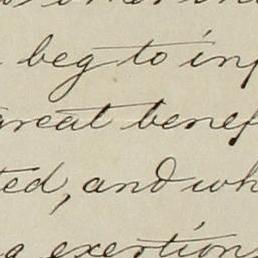 beg to inf
great benef
ted, and wh
g exertion